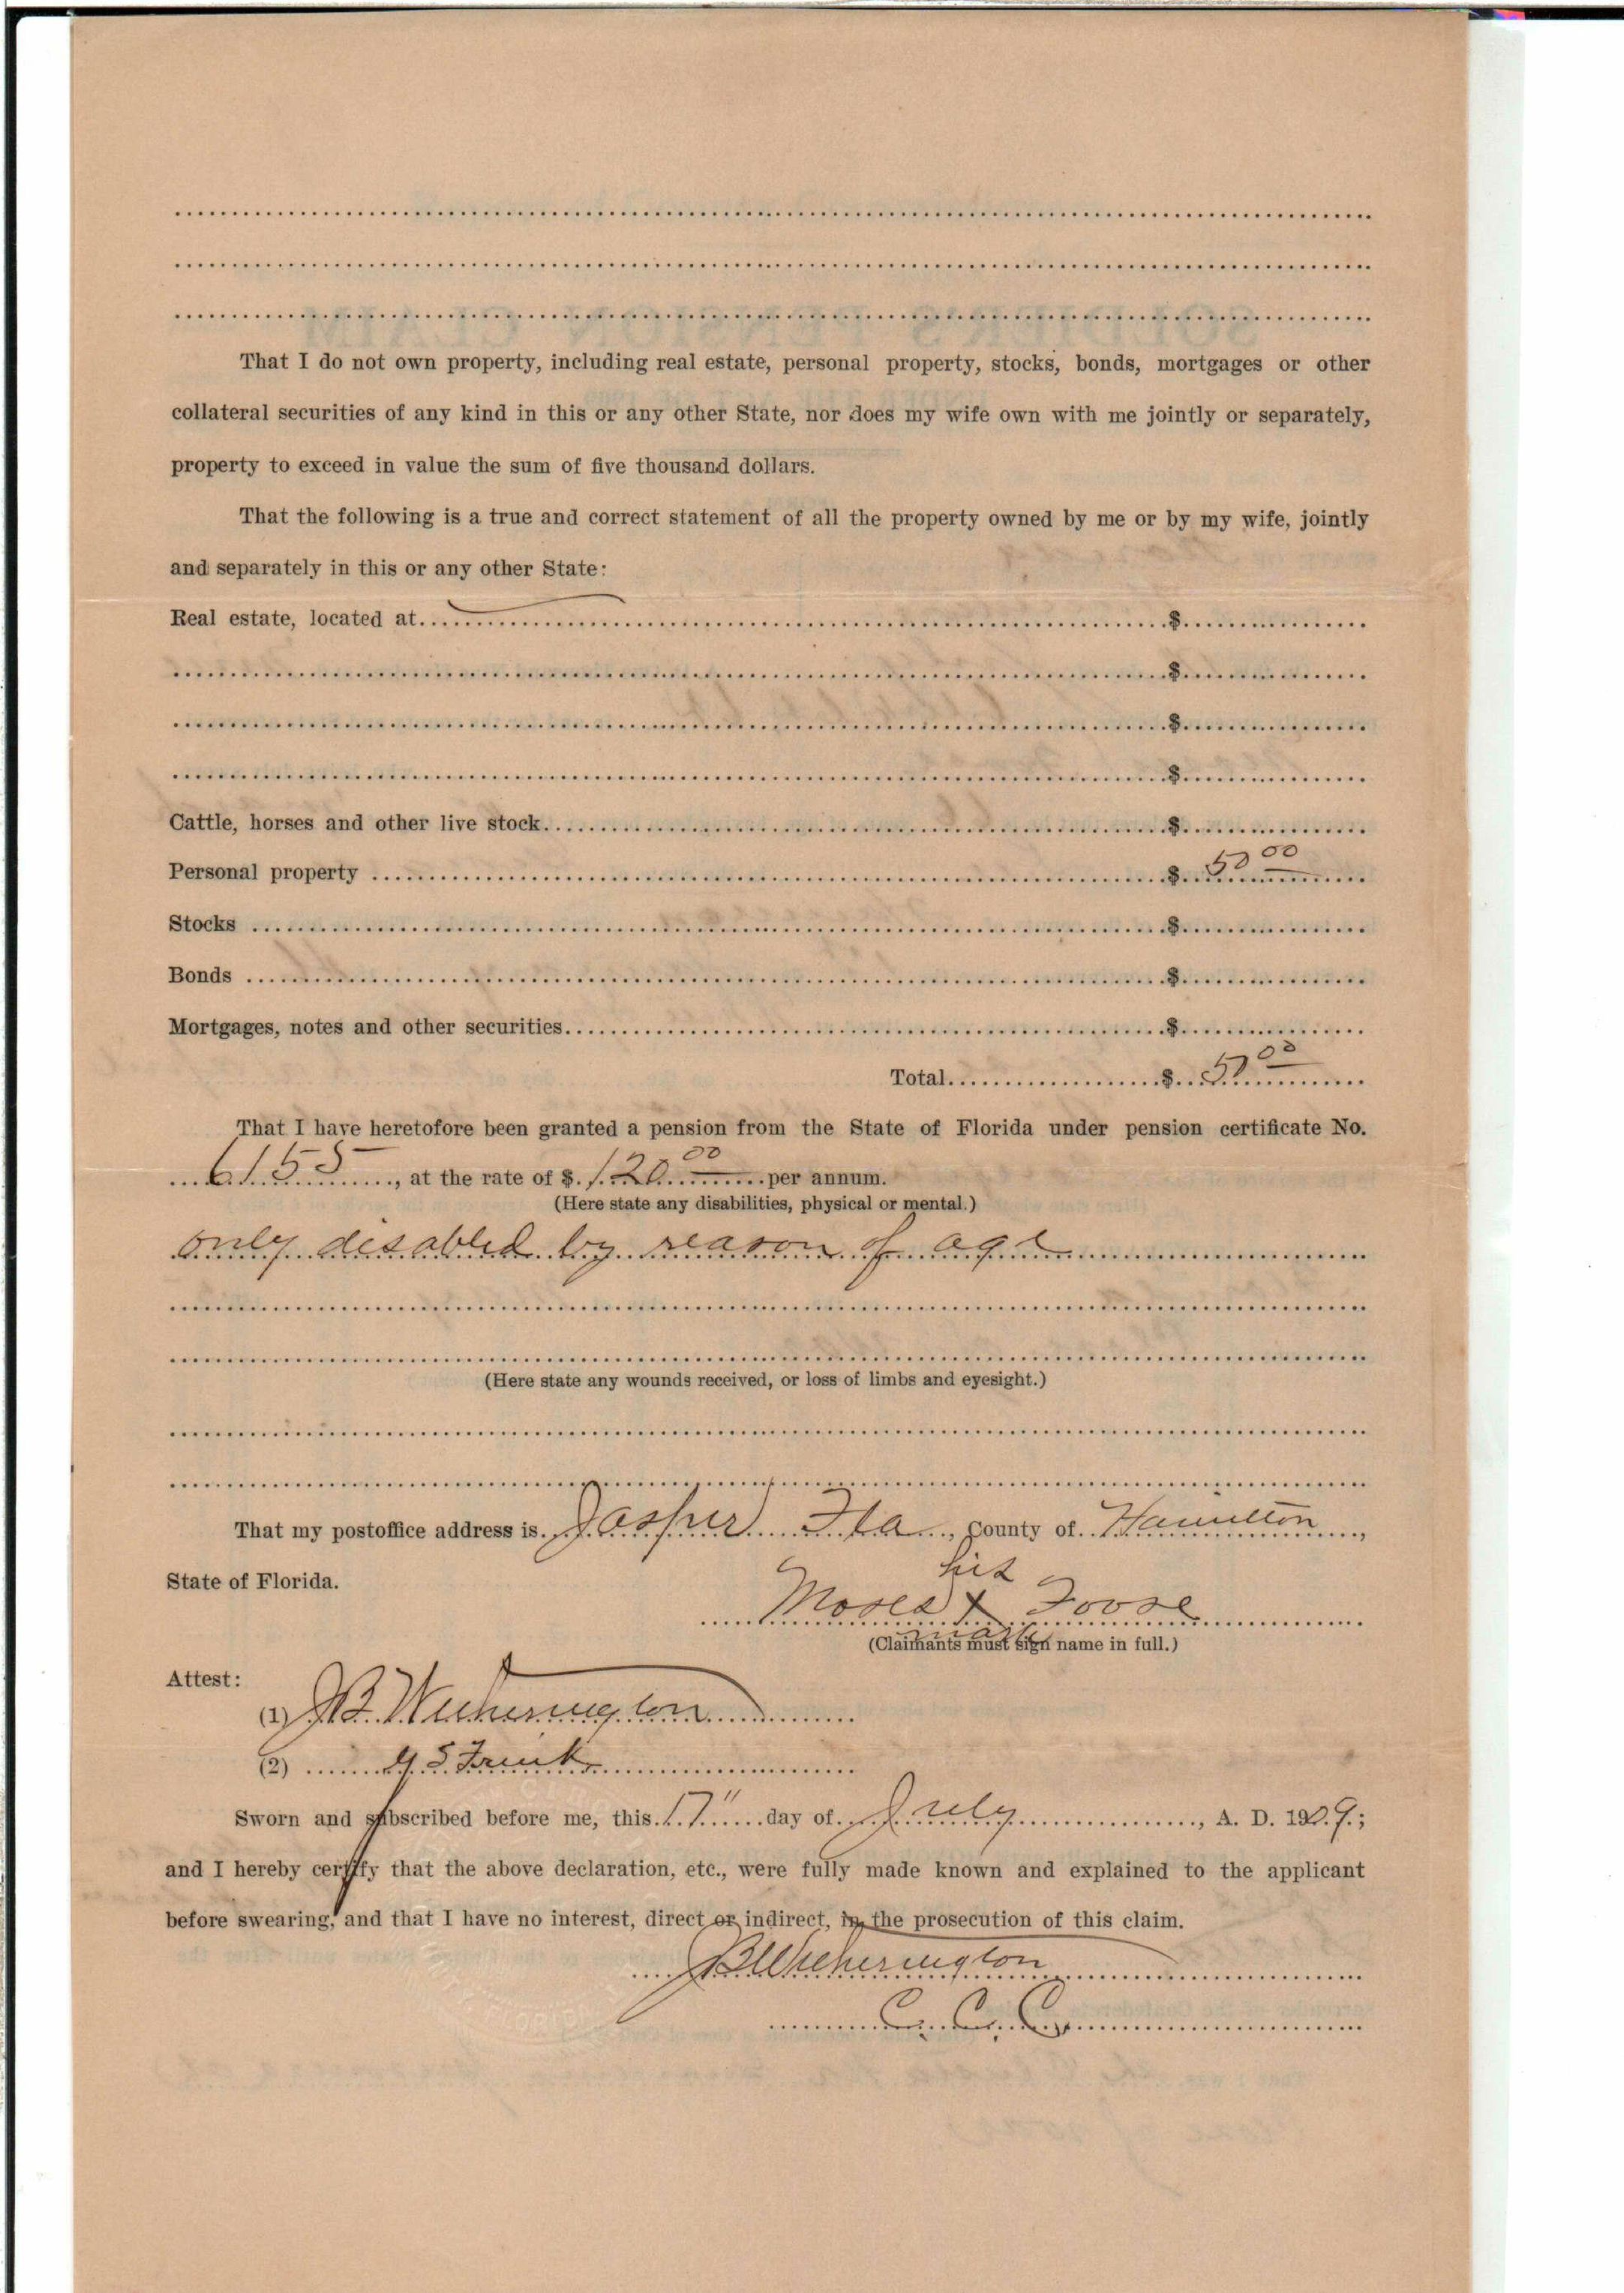 That I do not own property, including real estate, personal property, stocks, bonds, mortgages or other
collateral securities of any kind in this or any other State, nor does my wife own with me jointly or separately,
property to exceed in value the sum of five thousand dollars.
That the following is a true and correct statement of all the property owned by me or by my wife, jointly
and separately in this or any other State:
Real estate, located at $
$
$
$
Cattle, horses and other live stock $
Personal property $ 50 00
Stocks $
Bonds $
Mortgages, notes and other securities $
Total $ 50 00
That I have heretofore been granted a pension from the State of Florida under pension certificate No.
6155, at the rate of $ 120 00 per annum.
(Here state any disabilities, physical or mental.)
only disabled by reason of age
(Here state any wounds received, or loss of limbs and eyesight.)
That my postoffice address is Jasper Fla, County of Hamilton,
State of Florida.
his
Moses X Foose
mark
(Claimants must sign name in full.)
Attest:
(1) J B Witherington
(2) S Frink
Sworn and subscribed before me, this 17" day of July, A. D. 1909.;
and I hereby certify that the above declaration, etc., were fully made known and explained to the applicant
before swearing, and that I have no interest, direct or indirect, in the prosecution of this claim.
J B Witherington
C. C. C.